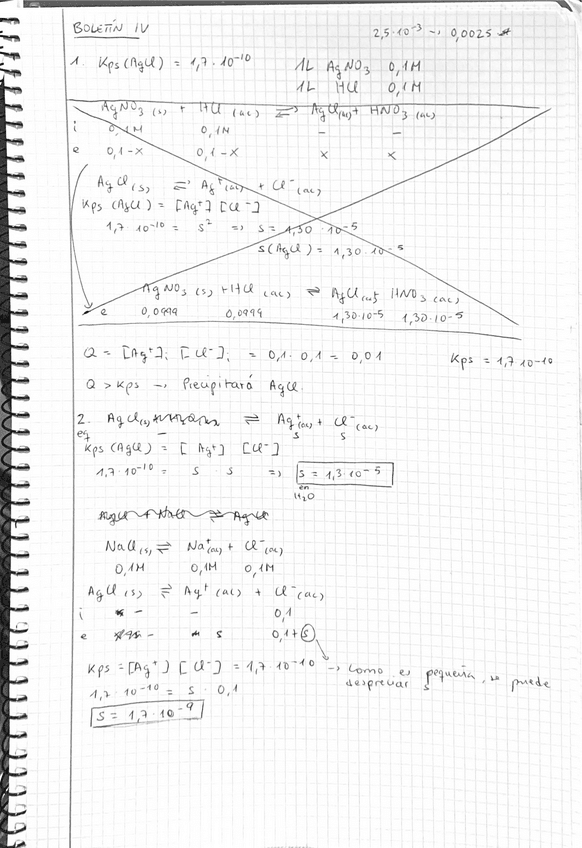 BOLETÍN IV
2,5·10⁻³ → 0,0025
1. Kps (AgCl) = 1,7·10⁻¹⁰ 1L AgNO₃ 0,1M
1L HCl 0,1M
AgNO₃ (s) + HCl (ac) ⇌ AgCl(s) + HNO₃ (ac)
i 0,1M 0,1M - -
e 0,1-x 0,1-x x x
AgCl (s) ⇌ Ag⁺(ac) + Cl⁻(ac)
Kps (AgCl) = [Ag⁺] [Cl⁻]
1,7·10⁻¹⁰ = s² => s = 1,30·10⁻⁵
s(AgCl) = 1,30·10⁻⁵
AgNO₃ (s) + HCl (ac) ⇌ AgCl(s) + HNO₃ (ac)
e 0,0999 0,0999 1,30·10⁻⁵ 1,30·10⁻⁵
Q = [Ag⁺]i [Cl⁻]i = 0,1·0,1 = 0,01 Kps = 1,7·10⁻¹⁰
Q > Kps → Precipitará AgCl.
2. AgCl(s) ⇌ Ag⁺(ac) + Cl⁻(ac)
eq - s s
Kps (AgCl) = [Ag⁺] [Cl⁻]
1,7·10⁻¹⁰ = s s => s = 1,3·10⁻⁵
en
H₂O
AgCl + NaCl ⇌ AgCl
NaCl (s) ⇌ Na⁺(ac) + Cl⁻(ac)
0,1M 0,1M 0,1M
AgCl (s) ⇌ Ag⁺(ac) + Cl⁻(ac)
i - - 0,1
e - s 0,1+s
Kps = [Ag⁺] [Cl⁻] = 1,7·10⁻¹⁰ → como es pequeña, se puede
despreciar s
1,7·10⁻¹⁰ = s · 0,1
s = 1,7·10⁻⁹